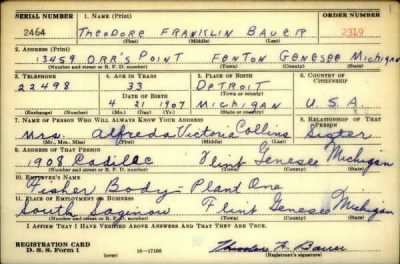 SERIAL NUMBER 1. NAME (Print) ORDER NUMBER
2464 THEODORE FRANKLIN BAUER 2319
(First) (Middle) (Last)
2. ADDRESS (Print)
13459 ORR'S POINT FENTON GENESEE MICHIGAN
(Number and street or R. F. D. number) (Town) (County) (State)
3. TELEPHONE 4. AGE IN YEARS 5. PLACE OF BIRTH 6. COUNTRY OF CITIZENSHIP
22498 33 DETROIT
DATE OF BIRTH (Town or county)
4 21 1907 MICHIGAN U.S.A.
(Exchange) (Number) (Mo.) (Day) (Yr.) (State or country)
7. NAME OF PERSON WHO WILL ALWAYS KNOW YOUR ADDRESS 8. RELATIONSHIP OF THAT PERSON
Mrs. Alfreda Victoria Collins Sister
(Mr., Mrs., Miss) (First) (Middle) (Last)
9. ADDRESS OF THAT PERSON
1908 Cadilac Flint Genesee Michigan
(Number and street or R. F. D. number) (Town) (County) (State)
10. EMPLOYER'S NAME
Fisher Body - Plant One
11. PLACE OF EMPLOYMENT OR BUSINESS
South Saginaw Flint Genesee Michigan
(Number and street or R. F. D. number) (Town) (County) (State)
I AFFIRM THAT I HAVE VERIFIED ABOVE ANSWERS AND THAT THEY ARE TRUE.
REGISTRATION CARD
D. S. S. Form 1 16—17105 Theodore F. Bauer
(over) (Registrant's signature)